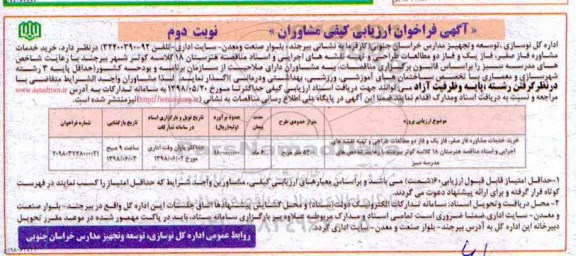 « آگهی فراخوان ارزیابی کیفی مشاوران » نوبت دوم
اداره کل نوسازی ،توسعه وتجهیز مدارس خراسان جنوبی(کارفرما به نشانی بیرجند- بلوار صنعت ومعدن- سایت اداری-تلفن ۳۲۴۰۰۳۹۰-۹۲) درنظر دارد، خرید خدمات
مشاوره فاز صفر، فاز یک و فاز دو مطالعات طراحی و تهیه نقشه های اجرایی و اسناد مناقصه هنرستان ۱۸ کلاسه کوثر شهر بیرجند با رعایت شاخص
های مدرسه سبز را براساس قانون برگزاری مناقصات، به مشاوران دارای صلاحیت از سازمان برنامه و بودجه کشور(حداقل پایه ۳ رشته
شهرسازی و معماری با تخصص ساختمان های آموزشی، ورزشی، بهداشتی ودرمانی) واگذار نماید. لذا مشاوران واجد الشرایط متقاضی با
درنظر گرفتن رشته ،پایه وظرفیت آزاد می توانند جهت دریافت اسناد ارزیابی کیفی حداکثر تا مورخ ۱۳۹۸/۰۵/۳۰ به سامانه تدارکات به آدرس
مراجعه و نسبت به دریافت اسناد ومدارک اقدام نمایند.ضمنا این آگهی در پایگاه ملی اطلاع رسانی مناقصات به نشانی نیزمنتشر شده است.
موضوع ارزیابی پروژه
مدت پیمان
حدود برآورد اولیه(ریال)
تاریخ تحویل و بارگزاری اسناد در سامانه تدارکات
تاریخ بازگشایی
شماره فراخوان
خرید خدمات مشاوره فاز صفر، فاز یک و فاز دو مطالعات طراحی و تهیه نقشه های
اجرایی و اسناد مناقصه هنرستان ۱۸ کلاسه کوثر بیرجند با رعایت شاخص های
مدرسه سبز
حداکثر پایان وقت اداری
مورخ ۱۳۹۸/۰۶/۰۲
ساعت ۹ صبح
۱۳۹۸/۰۶/۰۳
۱-حداقل امتیاز قابل قبول ارزیابی۶۰(شصت) می باشد و براساس معیارهای ارزیابی کیفی، مشاورین واجد شرایط که حداقل امتیاز را کسب نمایند در فهرست
کوتاه قرار گرفته و برای ارائه پیشنهاد دعوت می گردند.
۲- محل دریافت وتحویل اسناد: سامانه تدارکات الکترونیک دولت(ستاد) و محل گشایش پیشنهادها اتاق جلسات این اداره کل واقع در بیرجند- بلوار صنعت
و معدن- سایت اداری.ضمنا ضروری است تمامی اسناد و مدارک مربوطه علاوه بر بارگزاری سامانه ستاد، باید در پاکت مهمور شده در موعد مقرر تحویل
دبیرخانه این اداره کل به آدرس بیرجند- بلوار صنعت و معدن- سایت اداری گردد.
روابط عمومی اداره کل نوسازی، توسعه وتجهیز مدارس خراسان جنوبی